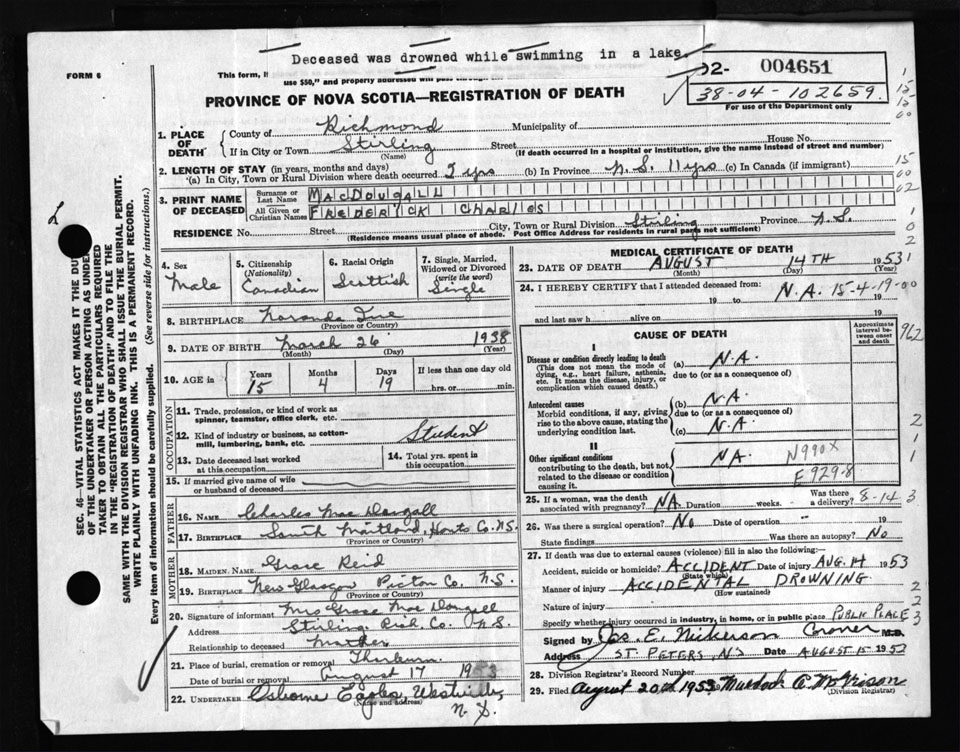 Deceased was drowned while swimming in a lake.
FORM 6
This form, i
use $50," and property addressed will pass through the
32- 004651
38-04-102659.
For use of the Department only
PROVINCE OF NOVA SCOTIA—REGISTRATION OF DEATH
1. PLACE OF DEATH
County of Richmond Municipality of
If in City or Town Stirling Street House No.
(Name) (If death occurred in a hospital or institution, give the name instead of street and number)
2. LENGTH OF STAY (in years, months and days)
(a) In City, Town or Rural Division where death occurred 2 yrs (b) In Province N.S. 11 yrs (c) In Canada (if immigrant)
3. PRINT NAME OF DECEASED
Surname or Last Name MACDOUGALL
All Given or Christian Names FREDERICK CHARLES
RESIDENCE No. Street City, Town or Rural Division Stirling Province N.S.
(Residence means usual place of abode. Post Office Address for residents in rural parts not sufficient)
4. Sex Male
5. Citizenship (Nationality) Canadian
6. Racial Origin Scottish
7. Single, Married, Widowed or Divorced (write the word) Single
8. BIRTHPLACE Noranda Que
(Province or Country)
9. DATE OF BIRTH March 26 1938
(Month) (Day) (Year)
10. AGE in Years 15 Months 4 Days 19 If less than one day old hrs. or min.
OCCUPATION
11. Trade, profession, or kind of work as spinner, teamster, office clerk, etc.
12. Kind of industry or business, as cotton-mill, lumbering, bank, etc. Student
13. Date deceased last worked at this occupation
14. Total yrs. spent in this occupation
15. If married give name of wife or husband of deceased
FATHER
16. Name Charles Mac Dougall
17. Birthplace South Maitland, Hants Co. N.S.
(Province or Country)
MOTHER
18. Maiden Name Grace Reid
19. Birthplace New Glasgow Pictou Co. N.S.
(Province or Country)
20. Signature of informant Mrs Grace Mac Dougall
Address Stirling Rich. Co. N.S.
Relationship to deceased Mother
21. Place of burial, cremation or removal Thorburn
Date of burial or removal August 17 1953
22. UNDERTAKER Osborne Eagles, Westville, N.S.
(Name and address)
MEDICAL CERTIFICATE OF DEATH
23. DATE OF DEATH AUGUST 14TH 1953
(Month) (Day) (Year)
24. I HEREBY CERTIFY that I attended deceased from: N.A. 15-4-19-00
19 to 19
and last saw h alive on 19
CAUSE OF DEATH
Approximate interval between onset and death
I
Disease or condition directly leading to death
(This does not mean the mode of dying, e.g., heart failure, asthenia, etc. It means the disease, injury, or complication which caused death.)
(a) N.A.
due to (or as a consequence of)
Antecedent causes
Morbid conditions, if any, giving rise to the above cause, stating the underlying condition last.
(b) N.A.
due to (or as a consequence of)
(c) N.A.
II
Other significant conditions
contributing to the death, but not related to the disease or condition causing it.
NA. N990X
E929.8
25. If a woman, was the death associated with pregnancy? NA. Duration weeks. - Was there a delivery? 8-14 3
26. Was there a surgical operation? No Date of operation - 19
State findings Was there an autopsy? No
27. If death was due to external causes (violence) fill in also the following:—
Accident, suicide or homicide? ACCIDENT Date of injury AUG. 14 1953
(State which)
Manner of injury ACCIDENTAL DROWNING
(How sustained)
Nature of injury
Specify whether injury occurred in industry, in home, or in public place PUBLIC PLACE
Signed by Jos. E. Nickerson Coroner M.D.
Address ST. PETERS, N.S Date AUGUST 15 1953
28. Division Registrar's Record Number
29. Filed August 20th 1953
(Division Registrar)
SEC. 46—VITAL STATISTICS ACT MAKES IT THE DU
OF THE UNDERTAKER OR PERSON ACTING AS UNDER
TAKER TO OBTAIN ALL THE PARTICULARS REQUIRED
IN THE "REGISTRATION OF DEATH" AND TO FILE THE
SAME WITH THE DIVISION REGISTRAR WHO SHALL ISSUE THE BURIAL PERMIT.
WRITE PLAINLY WITH UNFADING INK. THIS IS A PERMANENT RECORD.
Every item of information should be carefully supplied. (See reverse side for instructions.)
962